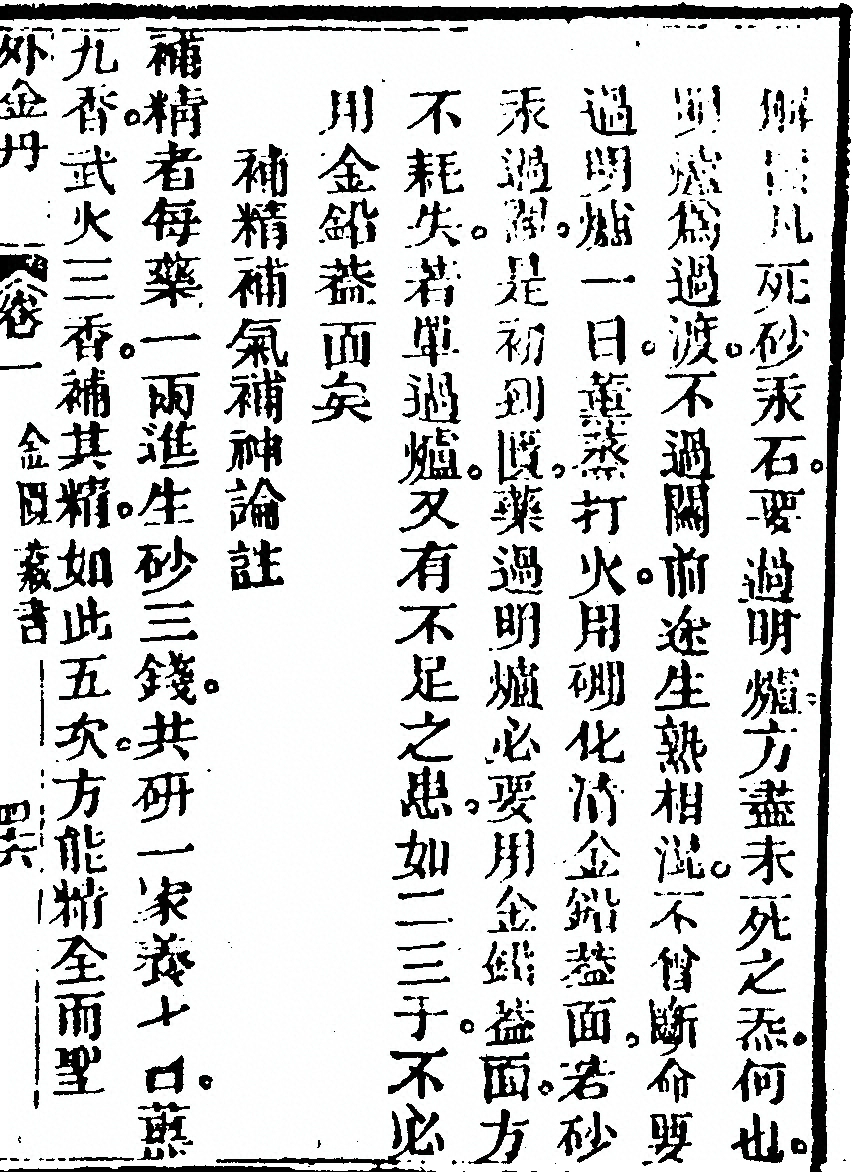 解曰凡死砂汞石。要過明爐。方盡未死之炁。何也。
明爐為過渡。不過關前途生熟相混。不曾斷命。要
過明爐一日。薰蒸打火。用硼化清金鉛葢面。若砂
汞過關。是初到匱。藥過明爐必要用金鉛葢面。方
不耗失。若單過爐。又有不足之患。如二三子。不必
用金鉛葢面矣
補精補氣補神論註
補精者每藥一兩進生砂三錢。共研一家養七日。薰
九香。武火三香。補其精。如此五次。方能精全而聖
外金丹 卷一 金匱藏書 四六